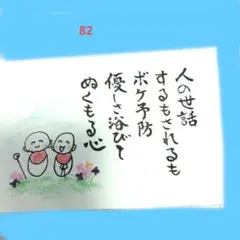 82
人の世話
するもされるも
ボケ予防
優しさ浴びて
ぬくもる心